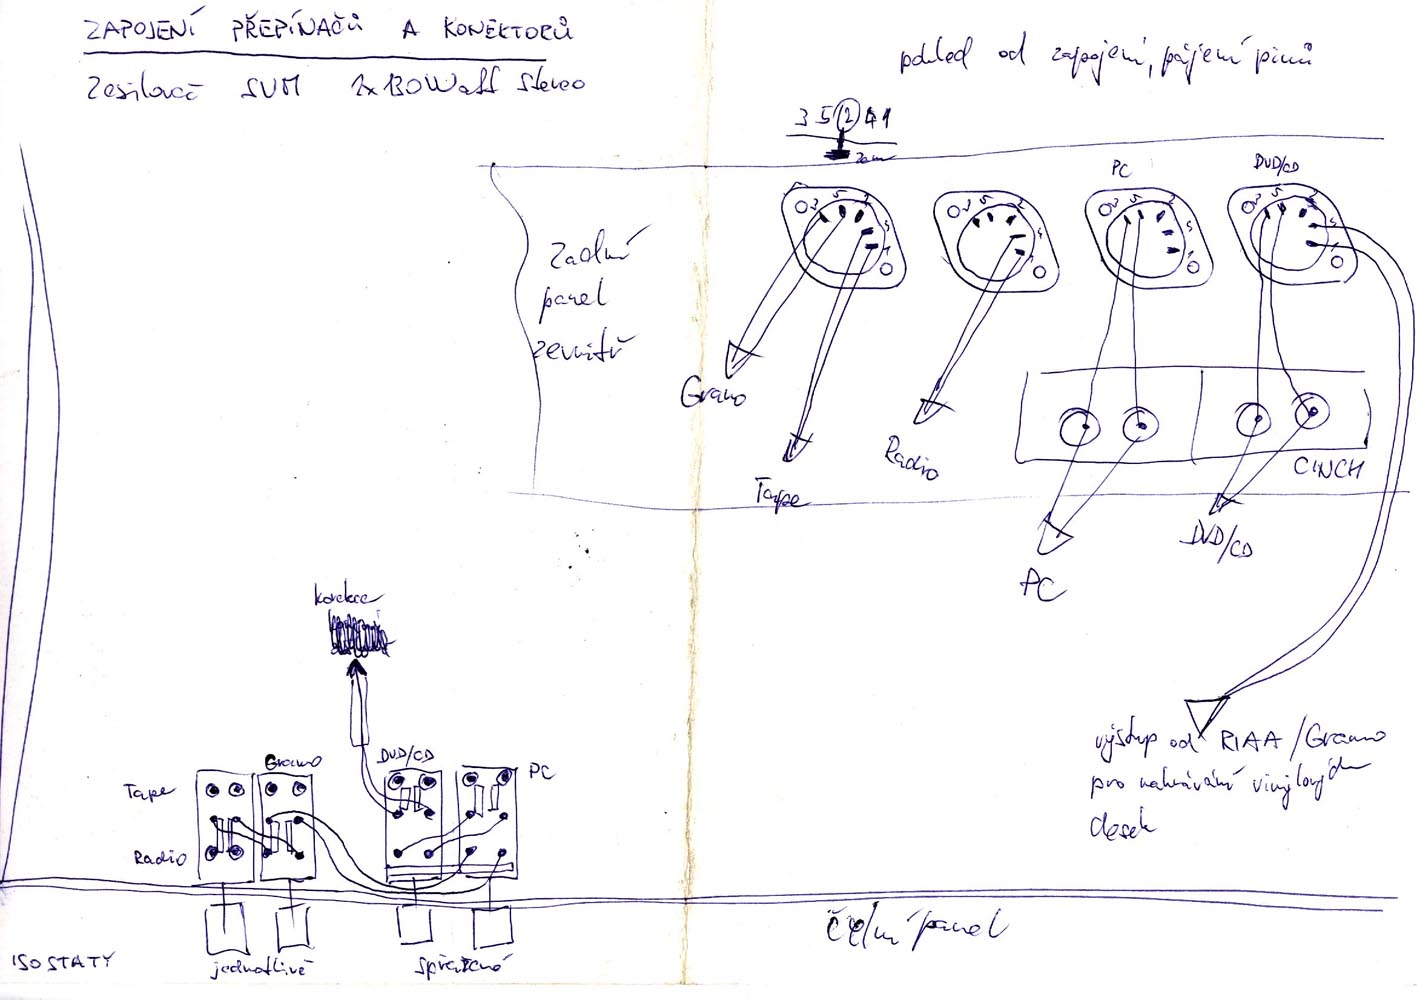 ZAPOJENÍ PŘEPÍNAČŮ A KONEKTORŮ
Zesilovač SVM 2x130Watt Stereo
pohled od zapojení, pájení pinů
3 5 2 4 1
zem
PC
DVD/CD
3 5 2
4
1
3 5 2
4
1
3 5 2
4
1
3 5 2
4
1
Zadní
panel
zevnitř
Gramo
Tape
Radio
CINCH
PC
DVD/CD
korekce
výstup od RIAA/Gramo
pro nahrávání vinylových
desek
Gramo
DVD/CD
PC
Tape
Radio
Čelní panel
ISOSTATY
jednotlivě
spřažené